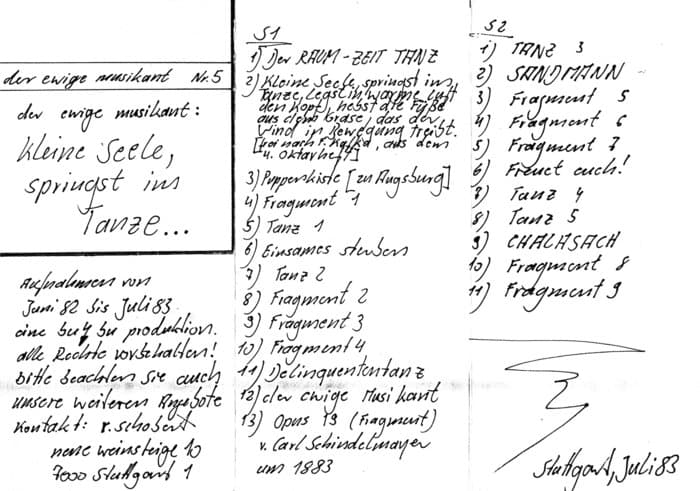 der ewige musikant Nr. 5
der ewige musikant:
Kleine Seele,
springst im
Tanze...
Aufnahmen von
Juni 82 bis Juli 83.
eine produktion.
alle Rechte vorbehalten!
bitte beachten Sie auch
unsere weiteren Angebote
Kontakt: r. Schobert
neue weinsteige 10
7000 Stuttgart 1
S1
1) Der RAUM-ZEIT TANZ
2) Kleine Seele, springst im
Tanze, legst in warme Luft
den Kopf, hebst die Füße
aus dem Grase, das der
Wind in Bewegung treibt.
[frei nach F. Kafka, aus dem
4. Oktavheft]
3) Puppenkiste [zu Augsburg]
4) Fragment 1
5) Tanz 1
6) Einsames sterben
7) Tanz 2
8) Fragment 2
9) Fragment 3
10) Fragment 4
11) Delinquententanz
12) der ewige Musikant
13) Opus 19 (Fragment)
v. Carl Schindelmayer
um 1883
S2
1) TANZ 3
2) SANDMANN
3) Fragment 5
4) Fragment 6
5) Fragment 7
6) Freuet euch!
7) Tanz 4
8) Tanz 5
9) CHALASACH
10) Fragment 8
11) Fragment 9
Stuttgart, Juli 83